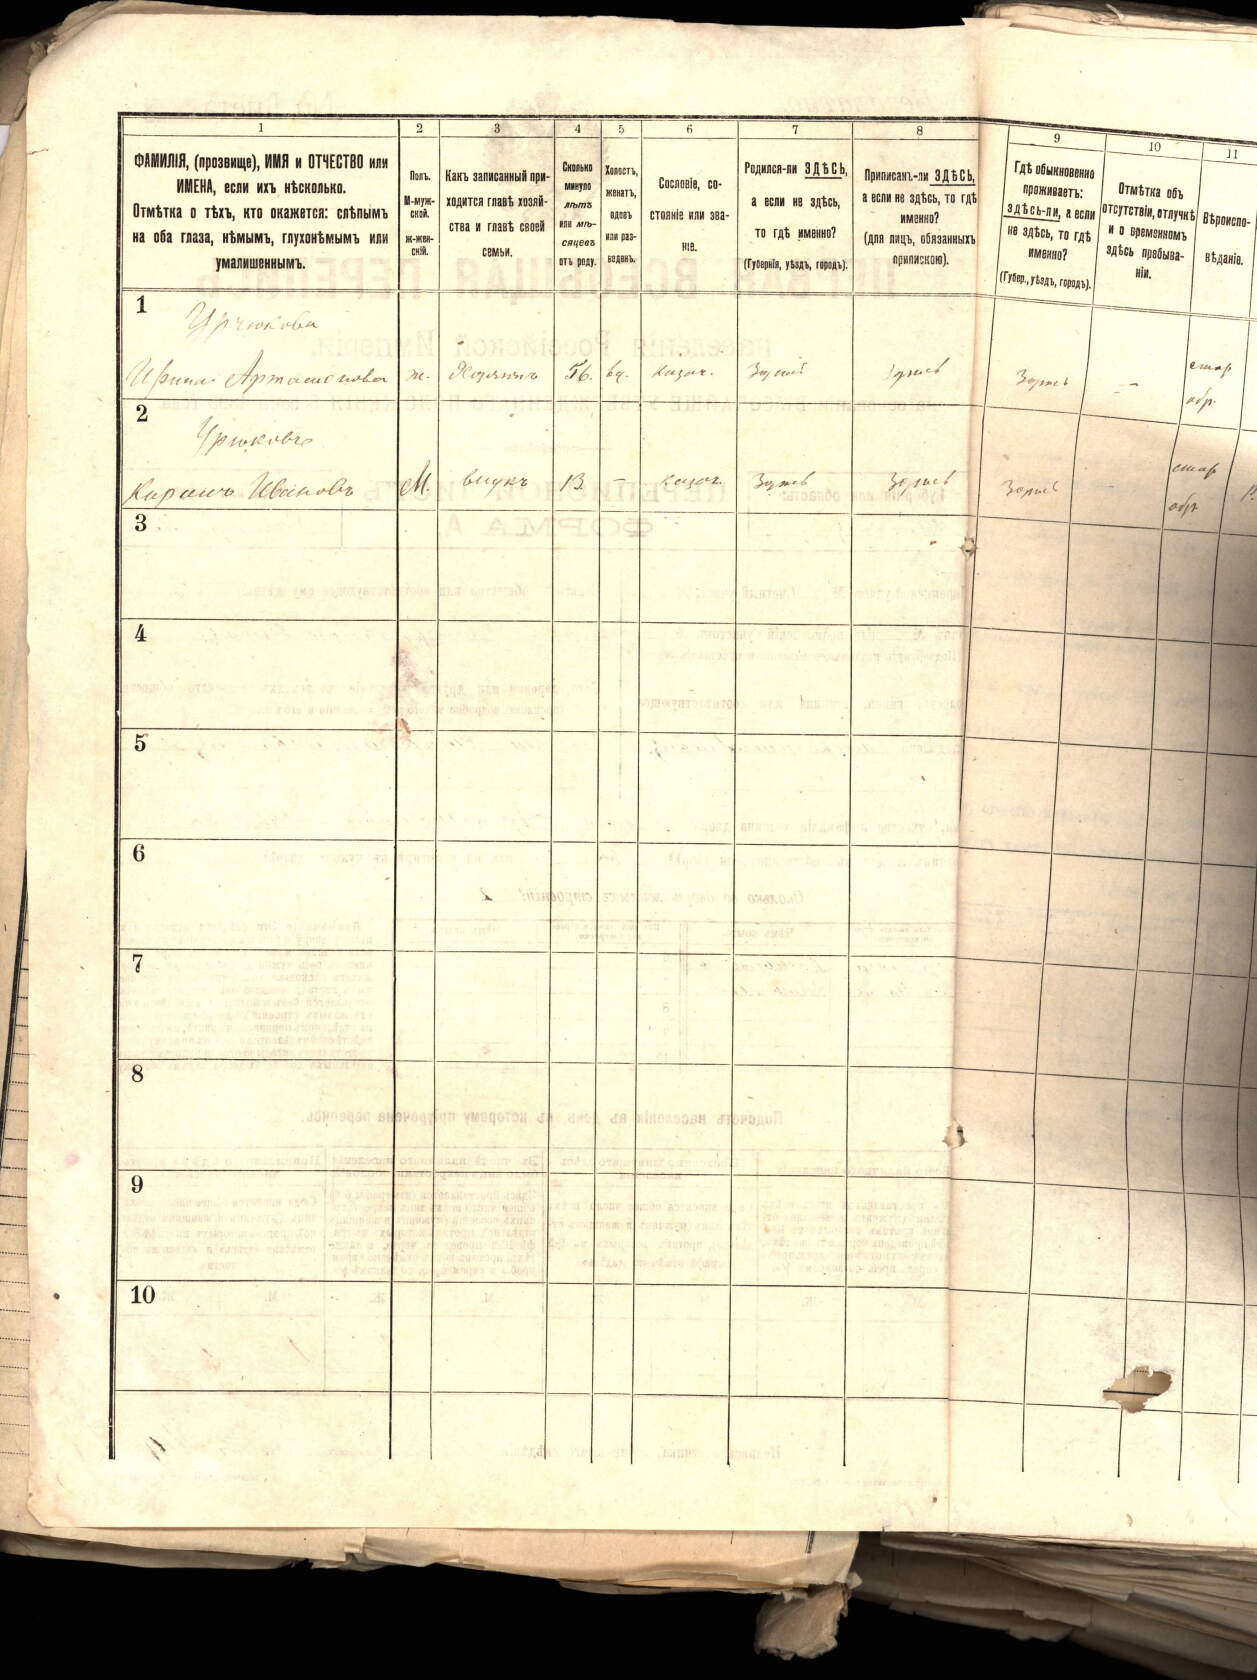 1 2 3 4 5 6 7 8 9 10 11
ФАМИЛІЯ, (прозвище), ИМЯ и ОТЧЕСТВО или
ИМЕНА, если ихъ нѣсколько.
Отмѣтка о тѣхъ, кто окажется: слѣпымъ
на оба глаза, нѣмымъ, глухонѣмымъ или
умалишеннымъ.
Полъ.
М-муж-
ской.
ж-жен-
скій.
Какъ записанный при-
ходится главѣ хозяй-
ства и главѣ своей
семьи.
Сколько
минуло
лѣтъ
или мѣ-
сяцевъ
отъ роду.
Холостъ,
женатъ,
вдовъ
или раз-
веденъ.
Сословіе, со-
стояніе или зва-
ніе.
Родился-ли ЗДѢСЬ,
а если не здѣсь,
то гдѣ именно?
(Губернія, уѣздъ, городъ).
Приписанъ-ли ЗДѢСЬ,
а если не здѣсь, то гдѣ
именно?
(для лицъ, обязанныхъ
припискою).
Гдѣ обыкновенно
проживаетъ:
здѣсь-ли, а если
не здѣсь, то гдѣ
именно?
(Губер., уѣздъ, городъ).
Отмѣтка объ
отсутствіи, отлучкѣ
и о временномъ
здѣсь пребыва-
ніи.
Вѣроиспо-
вѣданіе.
1
Ирина ж. 56. вд. казач. Здѣсь Здѣсь Здѣсь — стар
обр.
2
Урюковъ
Ивановъ М. внукъ 13 – казач. Здѣсь Здѣсь Здѣсь стар
обр
3
4
5
6
7
8
9
10